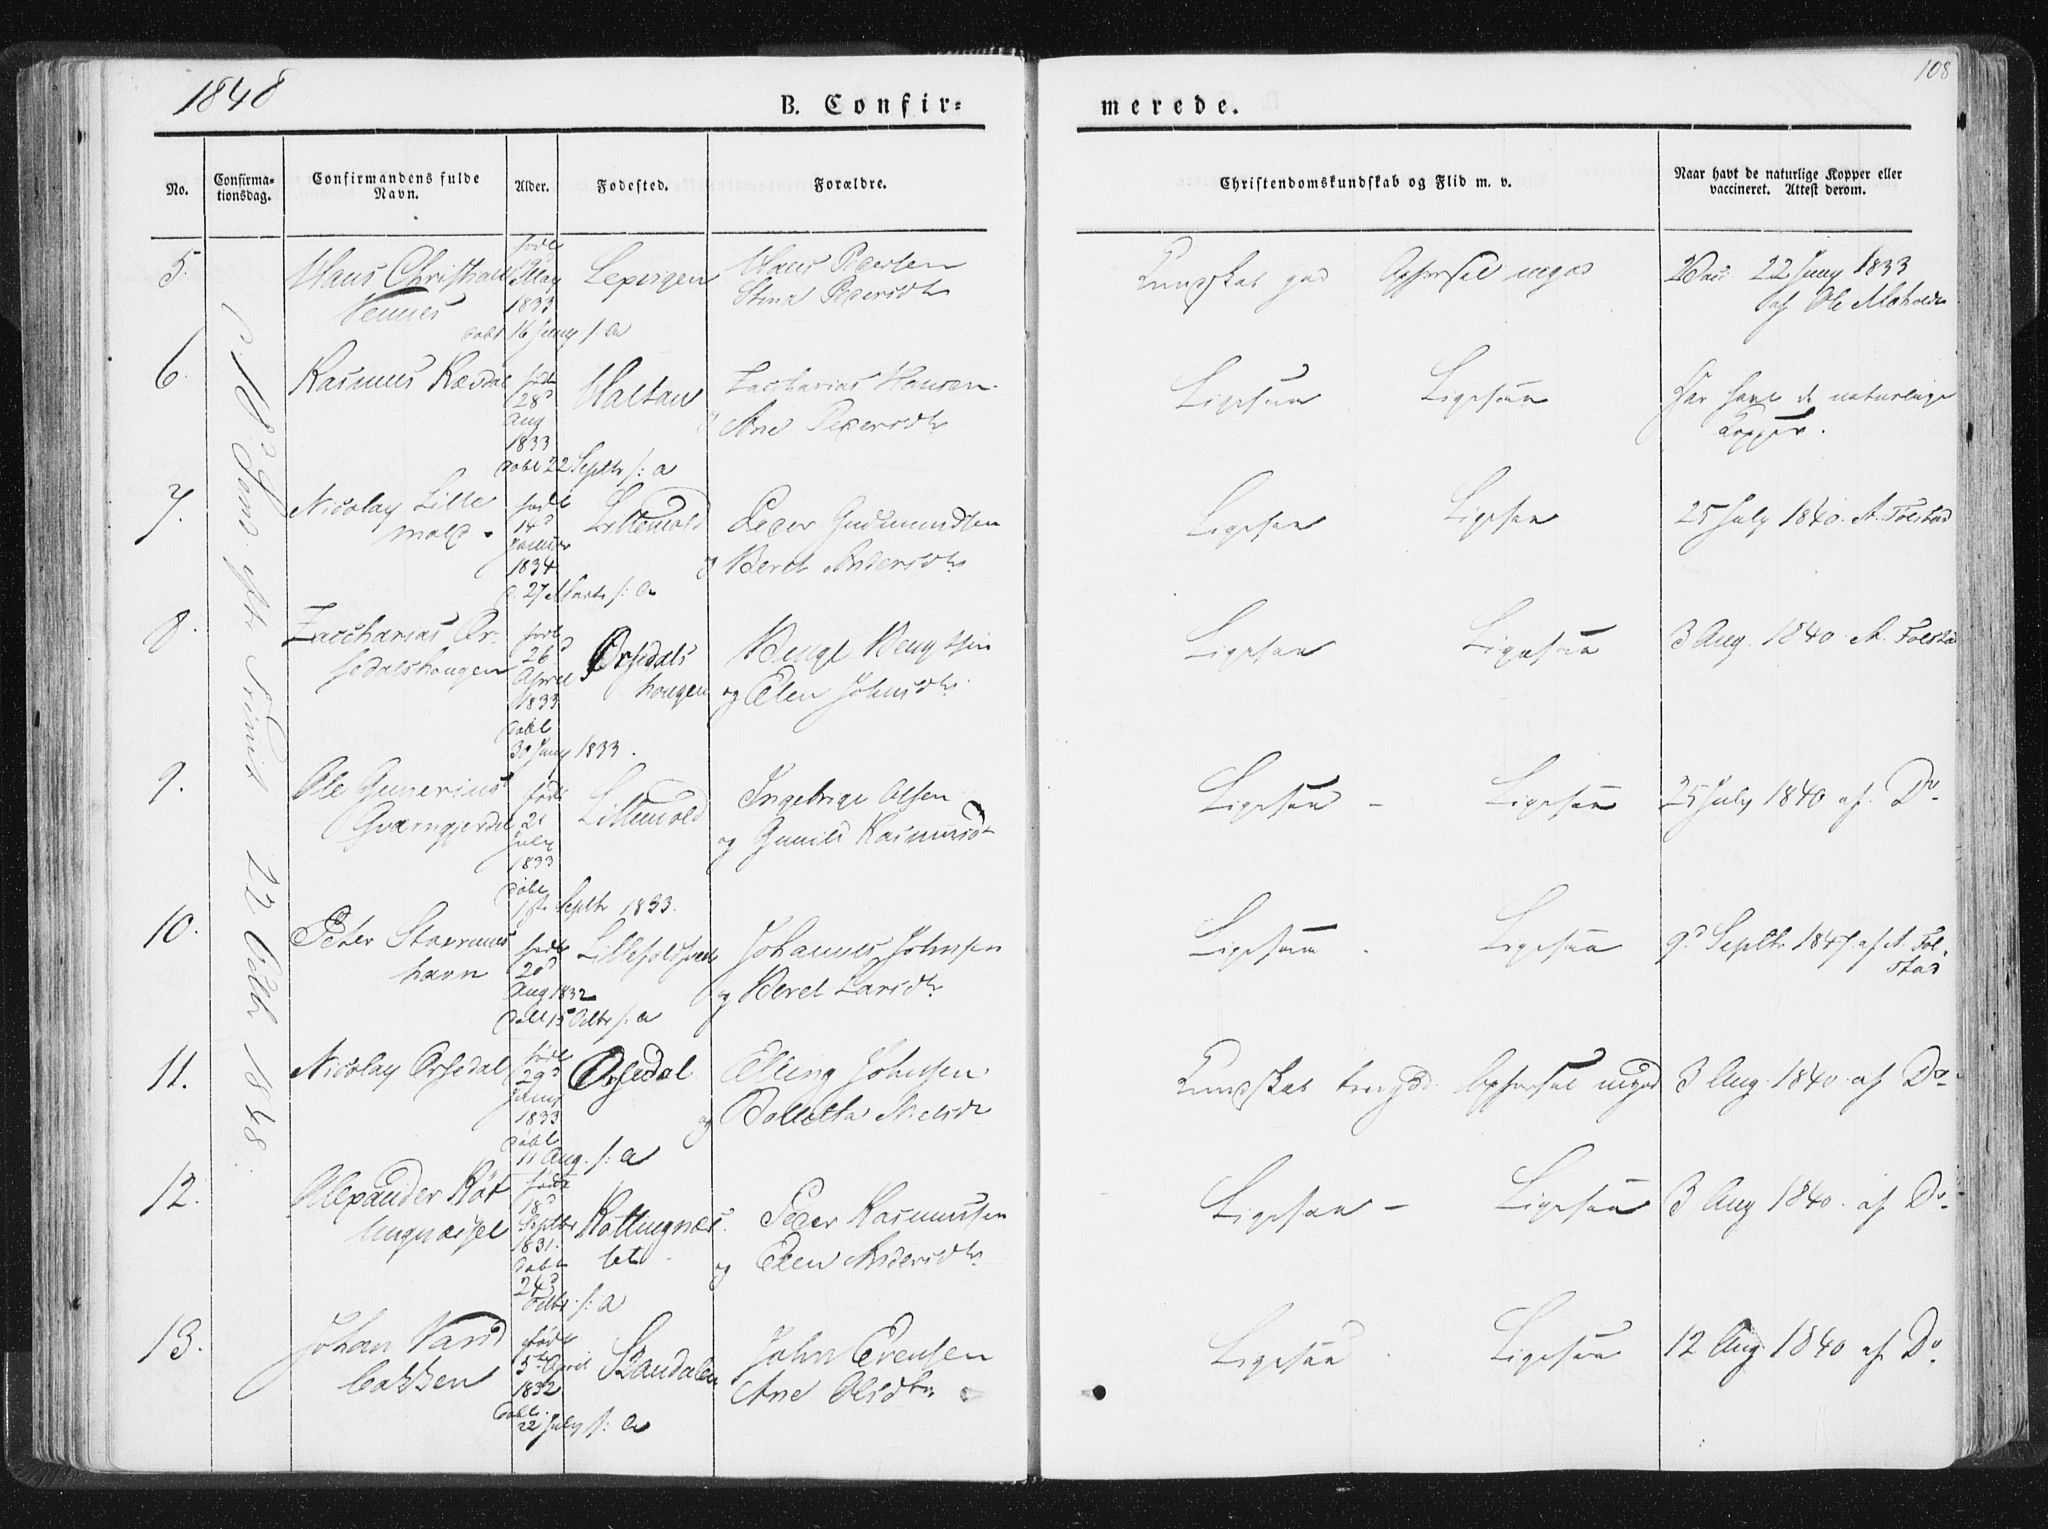 1848
108
B. Confir-
merede.
No.
Confirma-
tionsdag.
Confirmandens fulde
Navn.
Alder.
Fødested.
Forældre.
Christendomskundskab og Flid m. v.
Naar havt de naturlige Kopper eller
vaccineret. Attest derom.
18d Sønd. eft. Trinit 22 Octb 1848.
5.
Hans Christian
Vennes
født
19d
May
1833
døbt 16 Juny s: A
Hans Pedersen
Stina Pedersdtr
Kundskab god
Opførsel megod
Vac: 22 Juny 1833
af Ole
6.
Rasmus
født
28d
Aug
1833
døbt 22 Septbr s: a
Haltan
Zacharias Hansen
Ane Pedersdtr
Ligesaa
Ligesaa
Har havt de naturlige
Kopper.
7.
Nicolay Lille
mold.
født
14d
Januar
1834
d. 27 Marts s: a
Lillemold
Peder Gudmundsen
og Beret Andersdtr
Ligesaa
Ligesaa
25 July 1840. A. Tolstad
8.
Zaccharias Ør-
sedalshougen
født
26d
April
1833
døbt
30 Juny 1833.
Ørsedals
hougen
Bengt Bengtsen
og Elen Johnsdtr
Ligesaa
Ligesaa
3 Aug. 1840. A. Tolstad
9.
Ole Gunerius
Qværngjerdet
født
21
July
1833
døbt
1st Septbr 1833.
Lillemold
Ingebrigt Olsen
og Gunild Rasmusdt
Ligesaa -
Ligesaa
25 July 1840 af Do
10.
Peter Stavrnes
havn
født
20d
Aug 1832
døbt 15 Octbr s: a
Johannes Johnsen
og Beret Larsdtr
Ligesaa
Ligesaa
9d Septbr 1847. af A. Tol-
stad
11.
Nicolay Ørsedal
født
29d
Juny
1833
døbt
11 Aug. s: a
Ørsedal
Elling Johnsen
og Bolletta Nielsdr
Kundskab
Opførsel megod
3 Aug. 1840. af Do
12.
Alexander Røt
tingnæsset
født
18d
Septbr
1831.
døbt
24d
Octbr. s: a
Rottingnæs
let
Peder Rasmussen
og Elen Andersdtr
Ligesaa -
Ligesaa
3 Aug 1840. af Do
13.
Johan Vand
bakken
født
5te April
1832
døbt.
22 July s: a
Standalen
John Evensen
Ane Olsdtr
Ligesaa
Ligesaa
12 Aug 1840 af Do